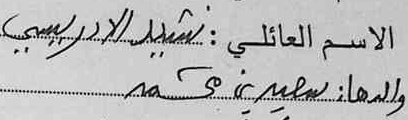 الاسم العائلي : نشيد الادريسي
والدها: سعيد بن محمد